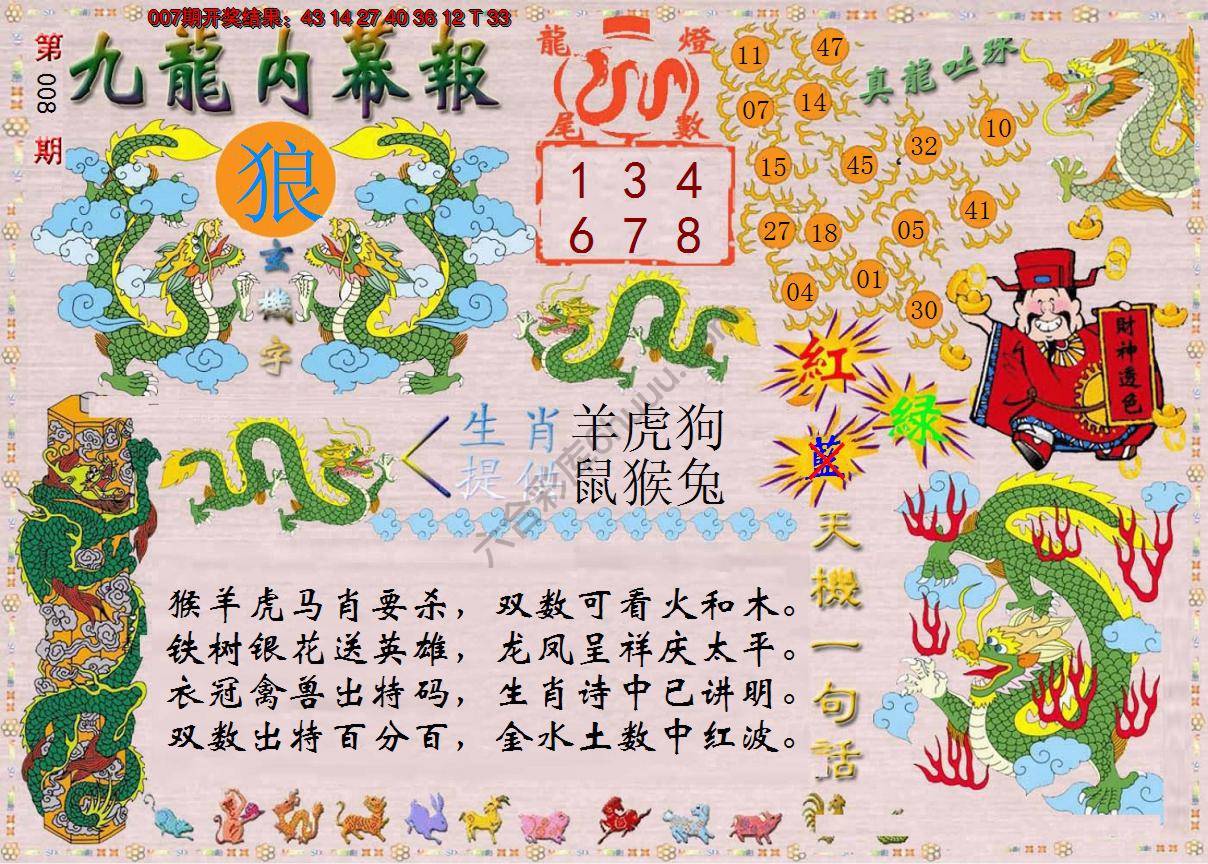 007期开奖结果：43 14 27 40 36 12 T 33
第
008
期
九龍内幕報
狼
玄
機
字
龍燈
尾數
1 3 4
6 7 8
真龍吐珠
11
47
07
14
32
10
15
45
27
18
05
41
04
01
30
財神透色
紅
綠
藍
生肖
提供
羊虎狗
鼠猴兔
猴羊虎马肖要杀，双数可看火和木。
铁树银花送英雄，龙凤呈祥庆太平。
衣冠禽兽出特码，生肖诗中已讲明。
双数出特百分百，金水土数中红波。
天機一句話